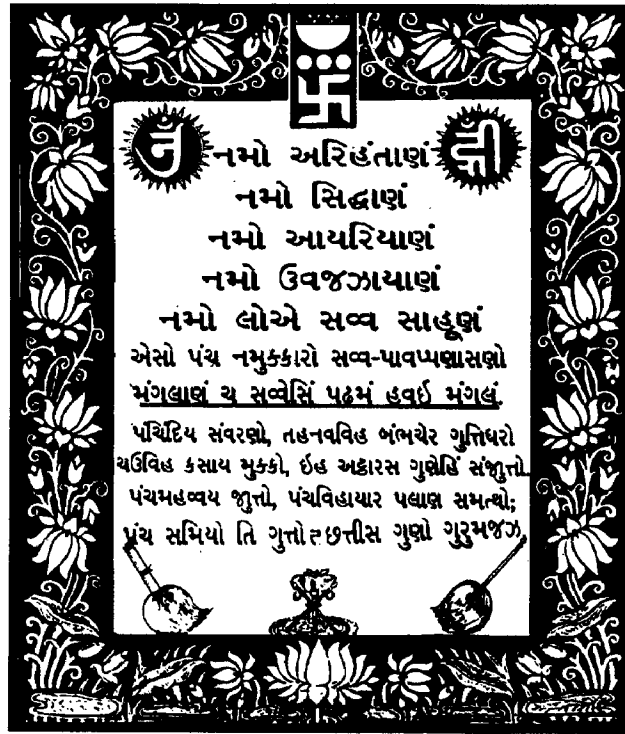 ૐ
હ્રીઁ
નમો અરિહંતાણં
નમો સિદ્ધાણં
નમો આયરિયાણં
નમો ઉવજઝાયાણં
નમો લોએ સવ્વ સાહૂણં
એસો પંચ નમુક્કારો સવ્વ-પાવપ્પણાસણો
મંગલાણં ચ સવ્વેસિં પઢમં હવઇ મંગલં.
પંચિંદિય સંવરણો, તહનવવિહ બંભચેર ગુત્તિધરો
ચઉવિહ કસાય મુક્કો, ઇહ અટ્ઠારસ ગુણેહિં સંજુત્તો
પંચમહવ્વય જુત્તો, પંચવિહાયાર પલાણ સમત્થો;
પંચ સમિયો તિ ગુત્તો છત્તીસ ગુણો ગુરુમજઝ